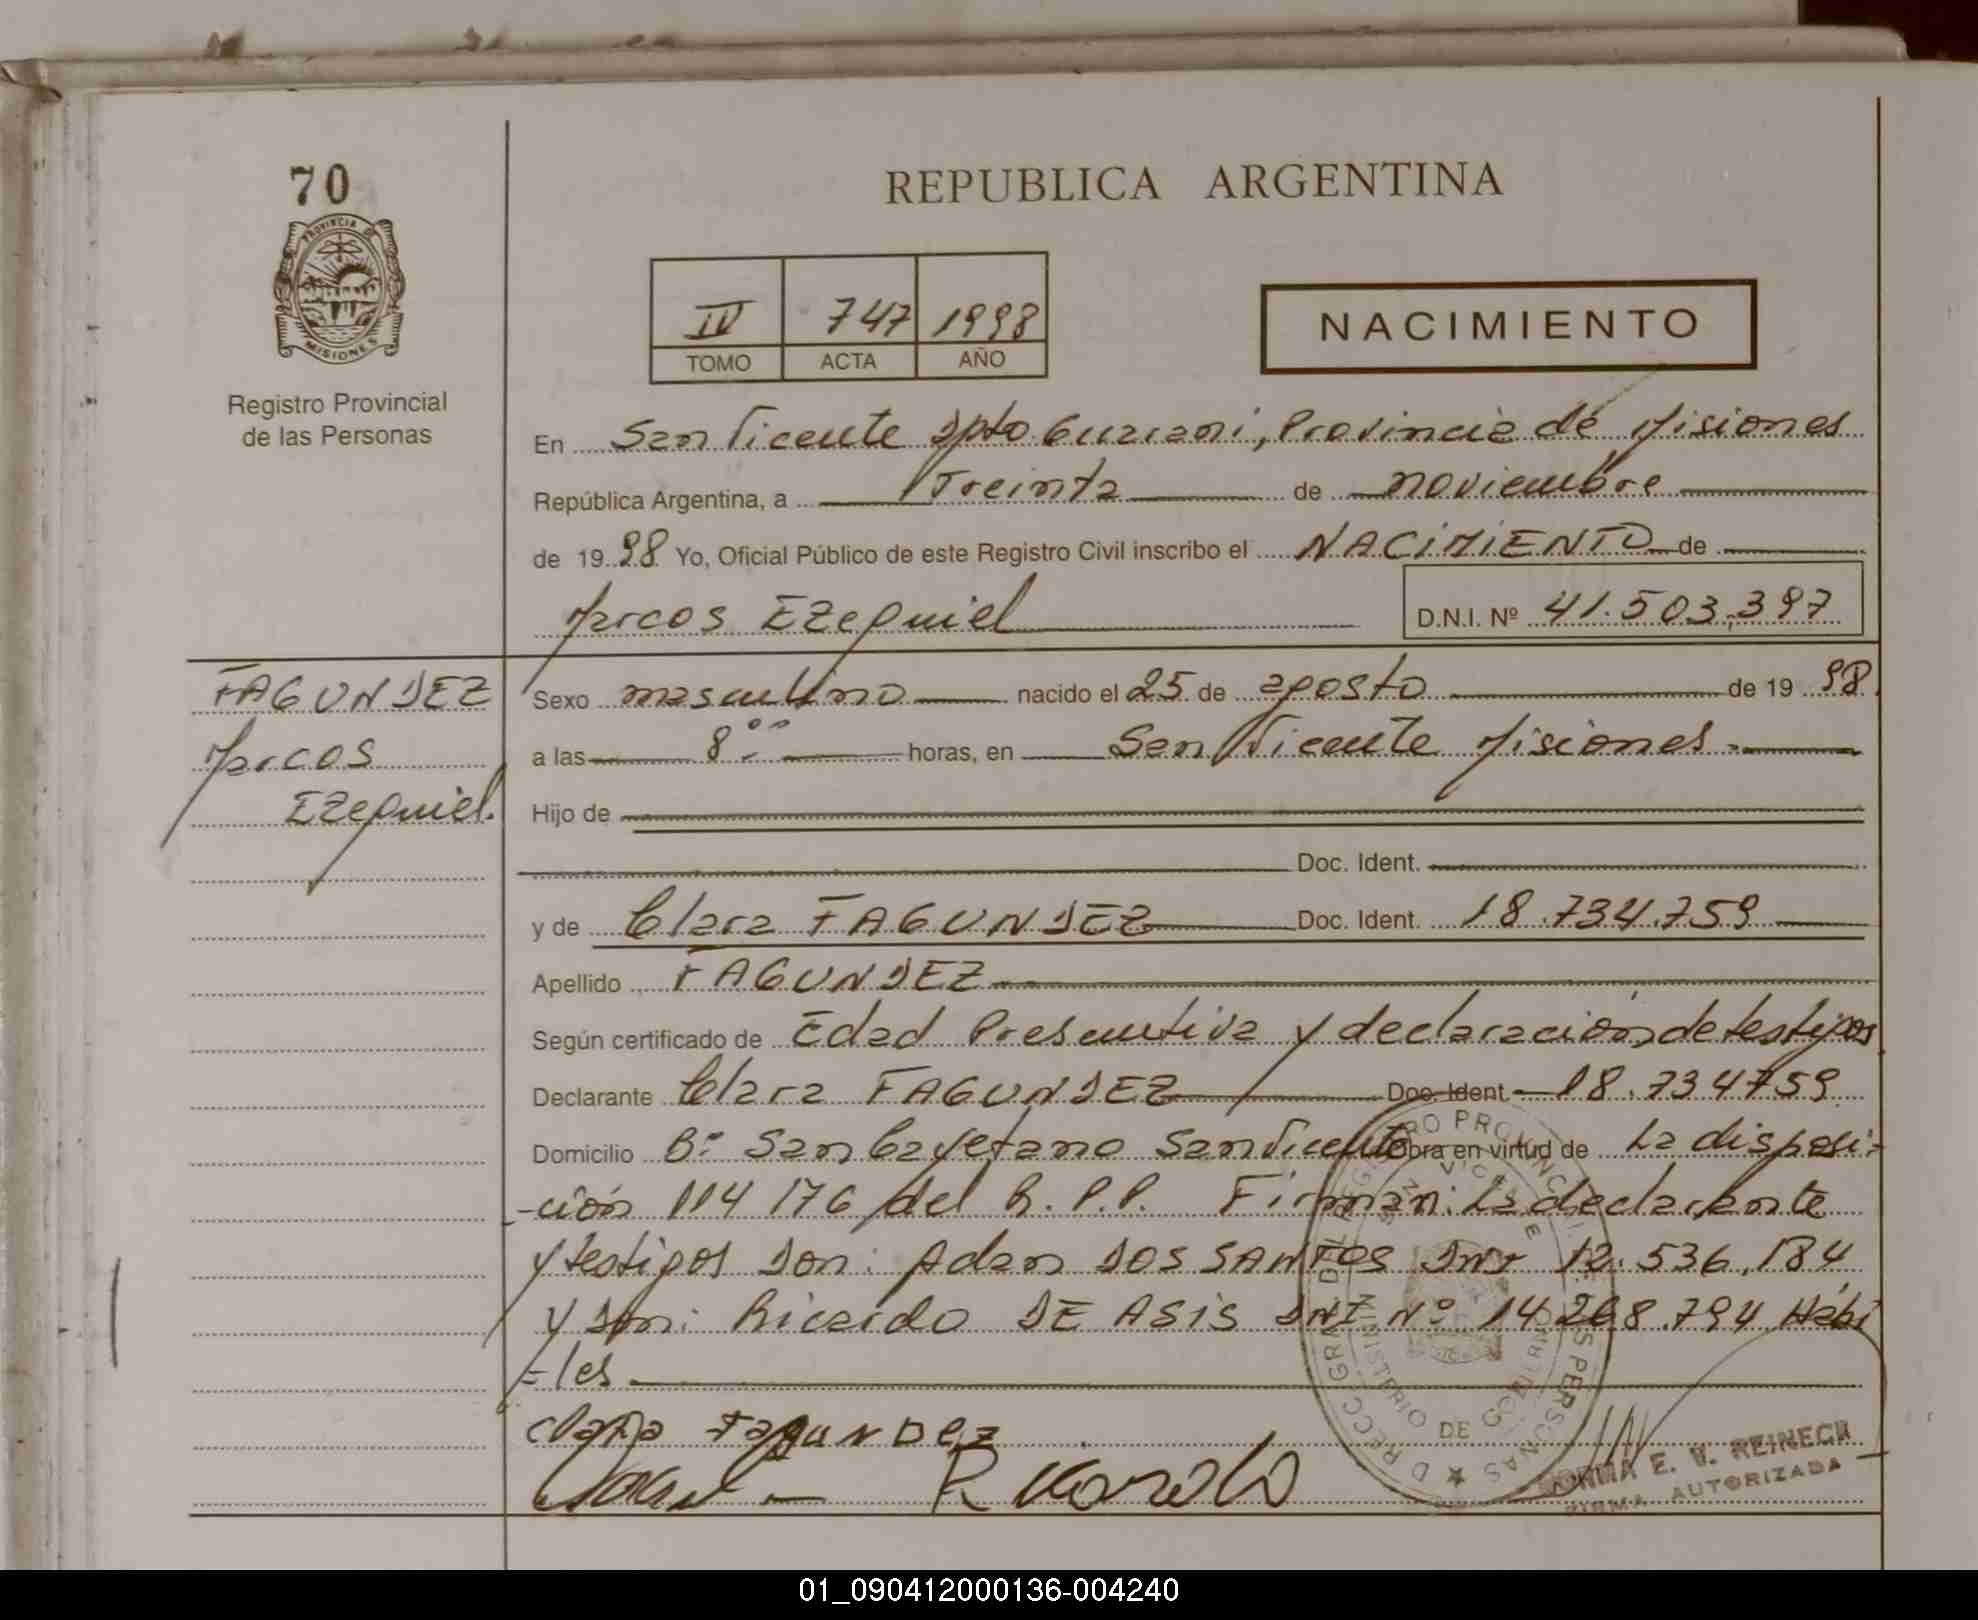 70
PROVINCIA DE
MISIONES
Registro Provincial
de las Personas
REPUBLICA ARGENTINA
IV 747 1998
TOMO ACTA AÑO
NACIMIENTO
En San Vicente Dpto. Guarani, Provincia de Misiones
República Argentina, a Treinta de noviembre
de 1998 Yo, Oficial Público de este Registro Civil inscribo el NACIMIENTO de
Marcos Ezequiel D.N.I. Nº 41.503.397
FAGUNDEZ
Marcos
Ezequiel.
Sexo masculino nacido el 25 de agosto de 1998
a las 8:00 horas, en San Vicente Misiones.-
Hijo de
Doc. Ident.
y de Clara FAGUNDEZ Doc. Ident. 18.734.759
Apellido FAGUNDEZ
Según certificado de Edad Presuntiva y declaración de testigos
Declarante Clara FAGUNDEZ Doc. Ident. 18.734759
Domicilio Bº San Cayetano San Vicente Obra en virtud de La disposi-
-ción 114/76 del R.P.P. Firman: La declarante
y testigos Don: Adan DOS SANTOS DNI 12.536.184
y Don: Ricardo DE ASIS DNI Nº 14.268.794 Hábi
=les
Clara FagunDez
Ricardo
NORMA E. V. REINECK
FIRMA AUTORIZADA
01_090412000136-004240